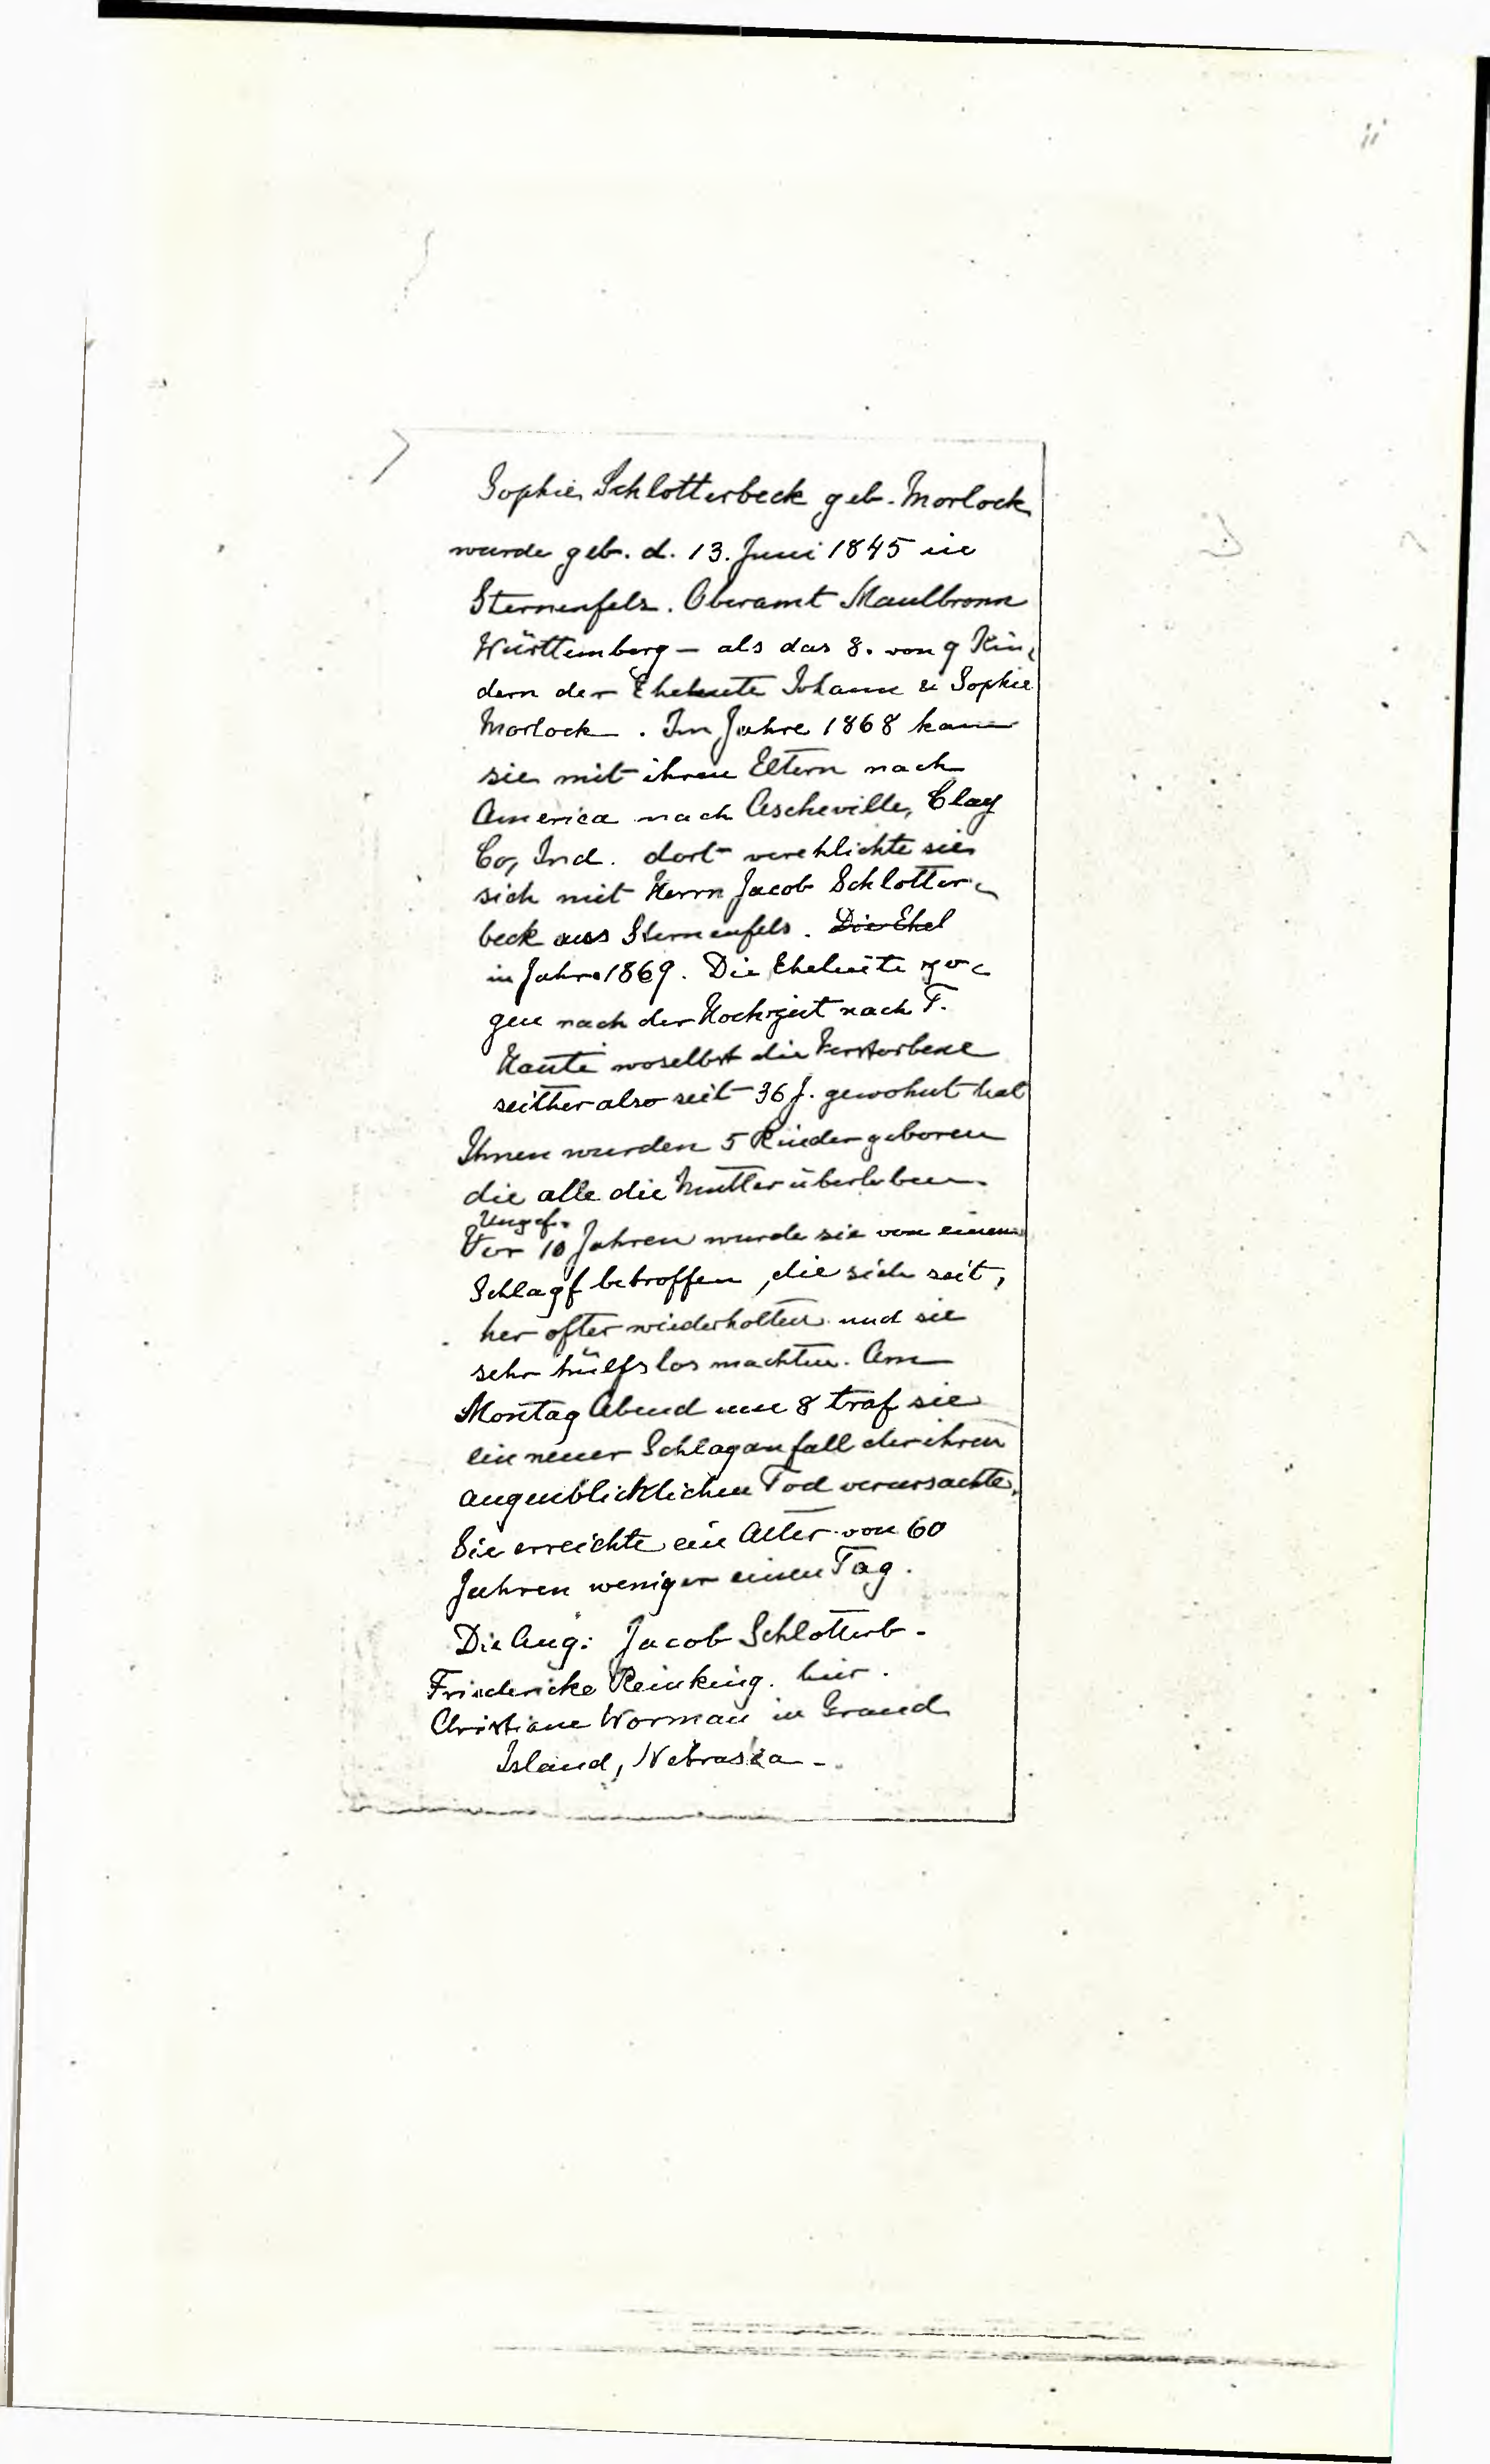 ii
Sophie Schlotterbeck geb. Morlock
wurde geb. d. 13. Juni 1845 in
Sternenfels. Oberamt Maulbronn
Württemberg – als das 8. von 9 Kin-
dern der Eheleute Johann & Sophie
Morlock. Im Jahre 1868 kam
sie mit ihren Eltern nach
America nach Ascheville, Clay
Co, Ind. dort verehlichte sie
sich mit Herrn Jacob Schlotter-
beck aus Sternenfels. Die Ehel
in Jahre 1869. Die Eheleute zo-
gen nach der Hochzeit nach T.
Haute woselbst die Verstorbene
seither also seit 36 J. gewohnt hat
Ihnen wurden 5 Kinder geboren
die alle die Mutter überleben.
Ungef.
Vor 10 Jahren wurde sie von einem
Schlagf betroffen, die sich seit,
her ofter wiederholten und sie
sehr hülfslos machten. Am
Montag Abend um 8 traf sie
ein neuer Schlaganfall der ihren
augenblicklichen Tod verursachte.
Sie erreichte ein Alter von 60
Jahren weniger einen Tag.
Die Ang: Jacob Schlotterb.
Friedericke Reinking. hier.
Christiane Worman in Grand
Island, Nebraska –